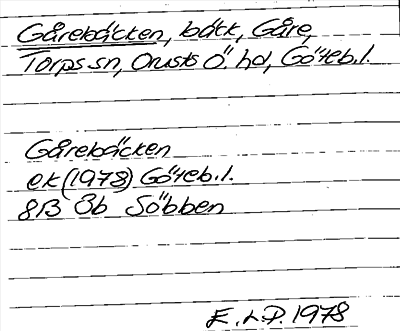 Gårebäcken, bäck, Gåre,
Torps sn, Orusts Ö. hd, Göteb. l.
Gårebäcken
ek (1978) Göteb. l.
8B 8b Söbben
E. L.P. 1978